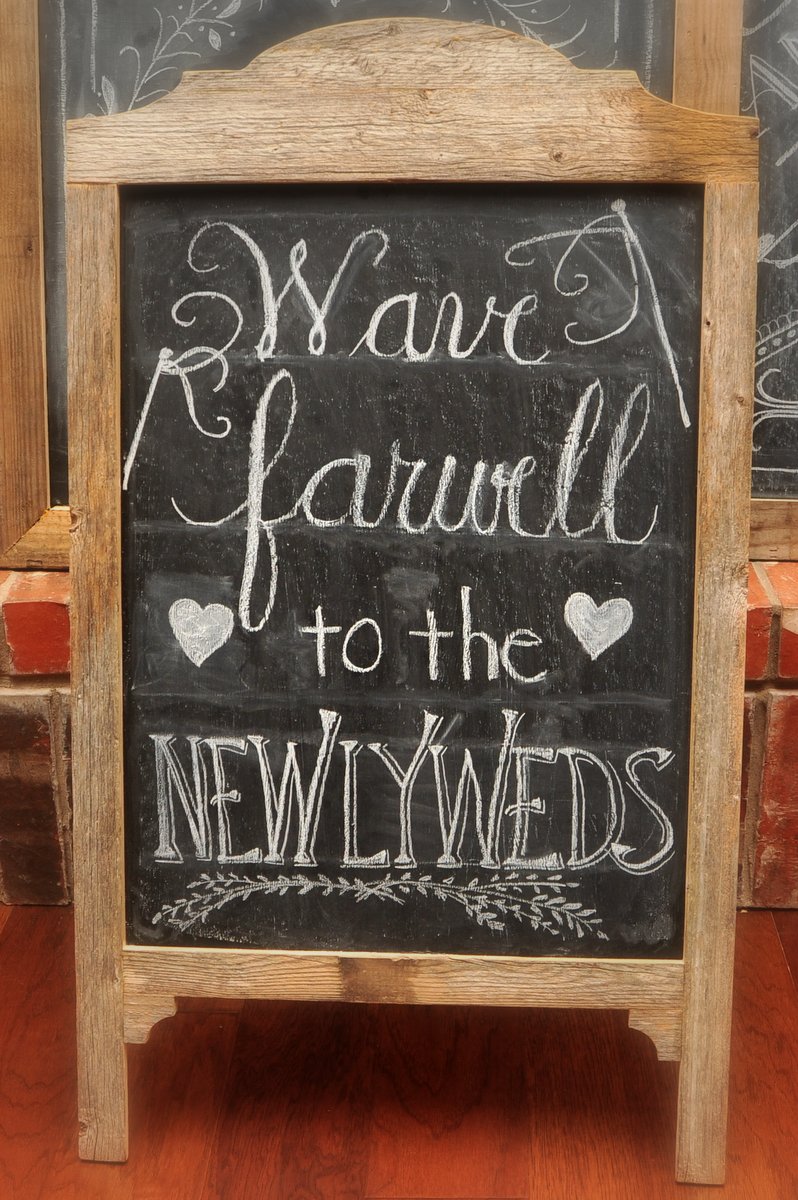 Wave
farwell
to the
NEWLYWEDS